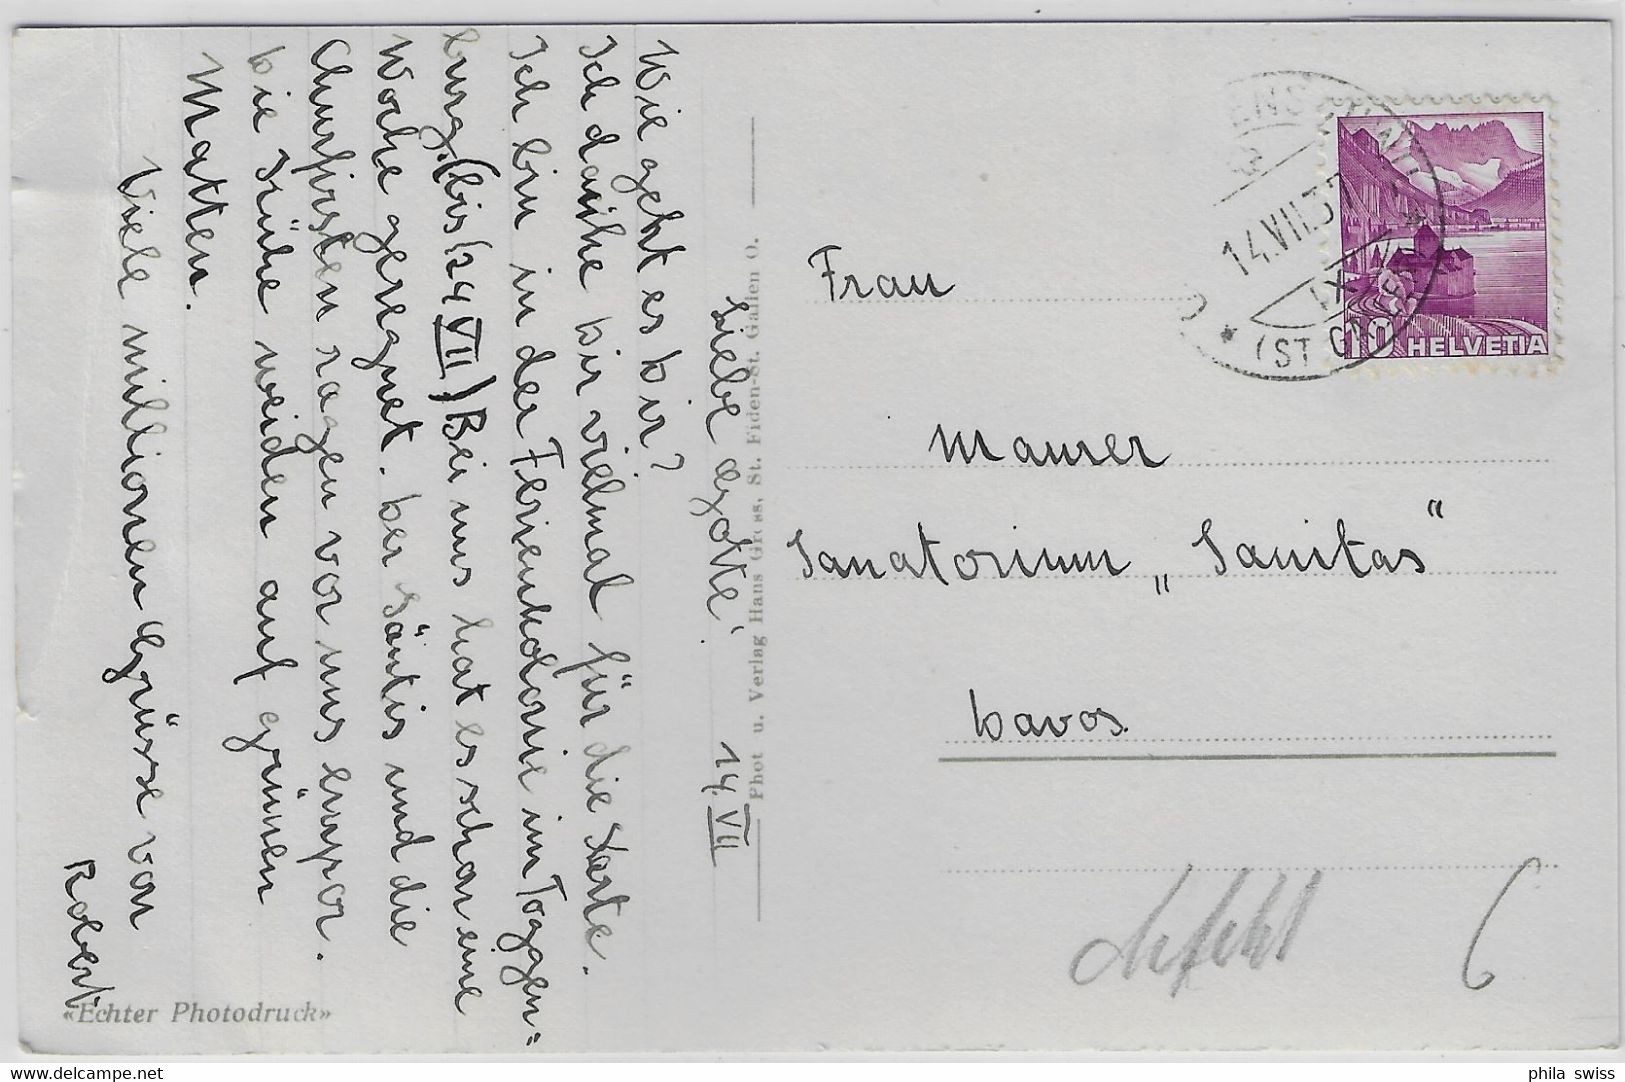 14. VII
Liebe Gotte!
Wie geht es dir?
Ich danke dir vielmal für die Karte.
Ich bin in der Ferienkolonie im Toggen=
burg. (bis 24 VII) Bei uns hat es schon eine
Woche geregnet. Der Säntis und die
Churfirsten ragen vor uns empor.
Die Kühe weiden auf grünen
Matten.
Viele millionen Grüsse von
Robert
«Echter Photodruck»
Phot u. Verlag Hans Gross, St. Fiden-St. Gallen O.
Frau
Maurer
Sanatorium „Sanitas“
Davos.
6
14.VII.37
IX
(ST. GALLEN)
10 HELVETIA
delcampe.net
phila swiss